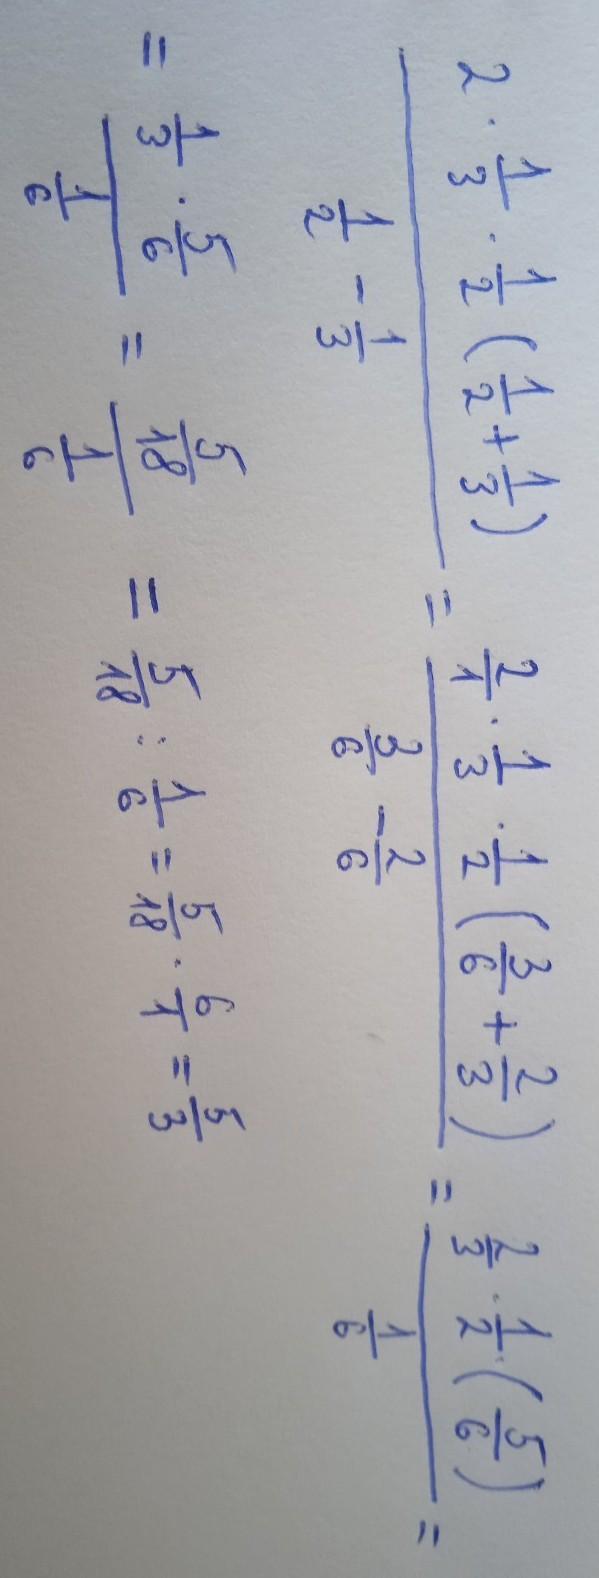 2 · 1/3 · 1/2 (1/2 + 1/3) / (1/2 - 1/3) = 2/1 · 1/3 · 1/2 (3/6 + 2/3) / (3/6 - 2/6) = 2/3 · 1/2 · (5/6) / (1/6) =
= (1/3 · 5/6) / (1/6) = (5/18) / (1/6) = 5/18 : 1/6 = 5/18 · 6/1 = 5/3